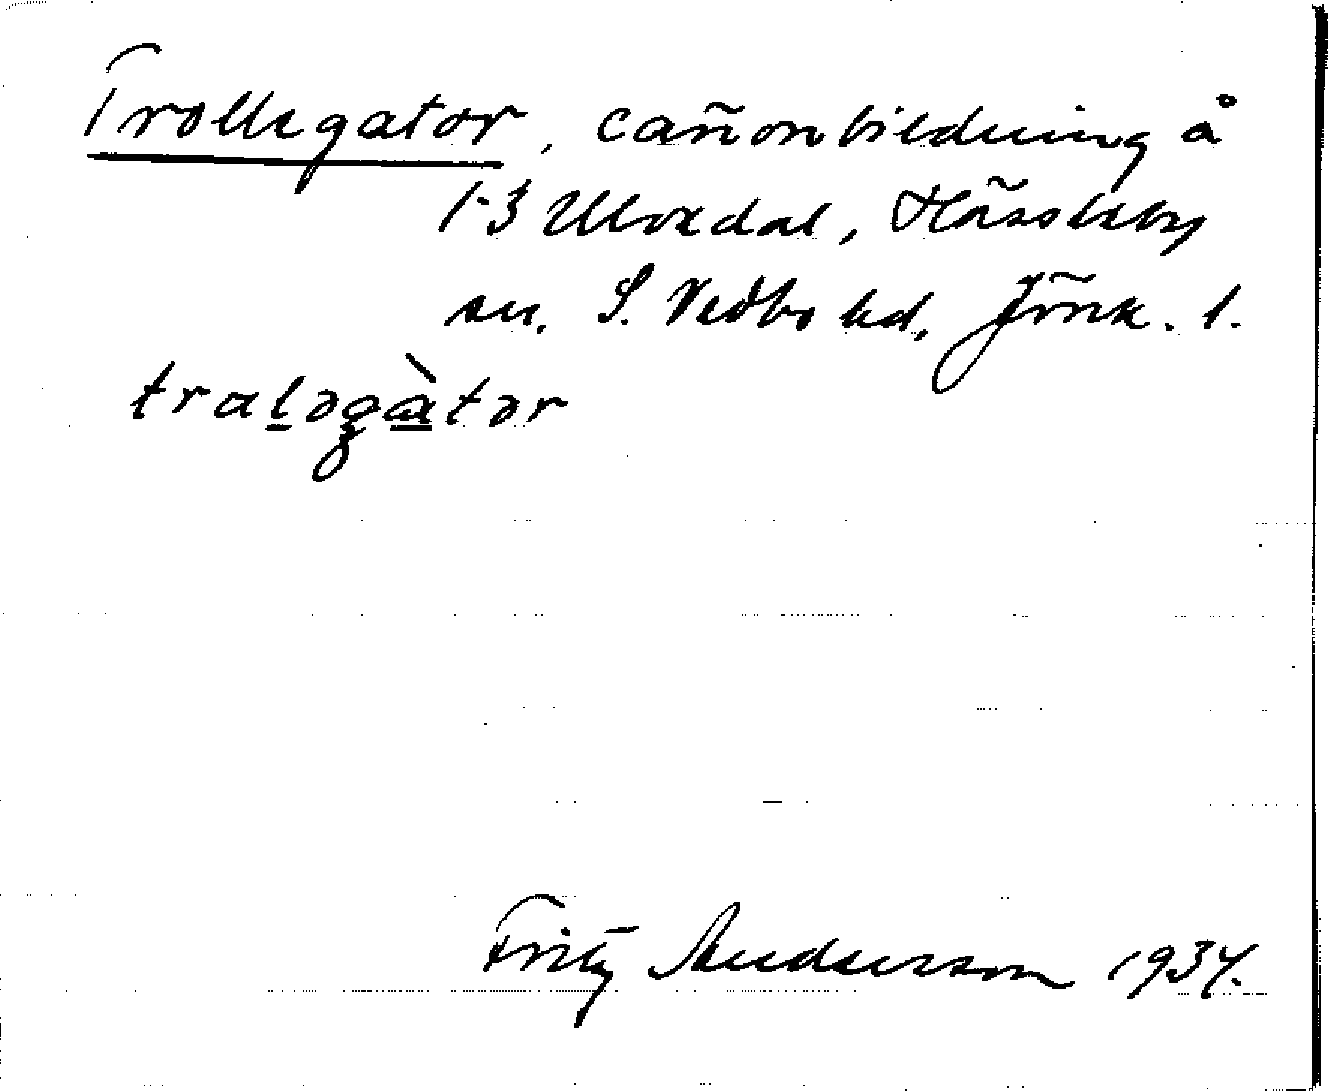 Trollegator, cañonbildning å
1-3 Ulvedal, Hässleby
sn, S. Vedbo hd, Jönk. l.
tralǝgàtǝr
Fritz Andersson 1934.